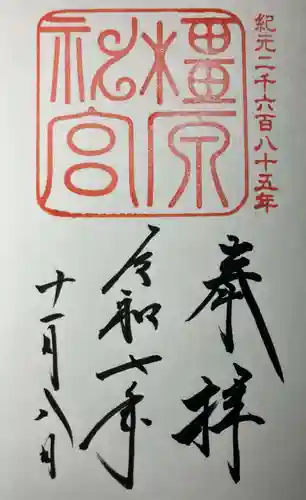 紀元二千六百八十五年
橿原神宮
奉拝
令和七年
十一月八日